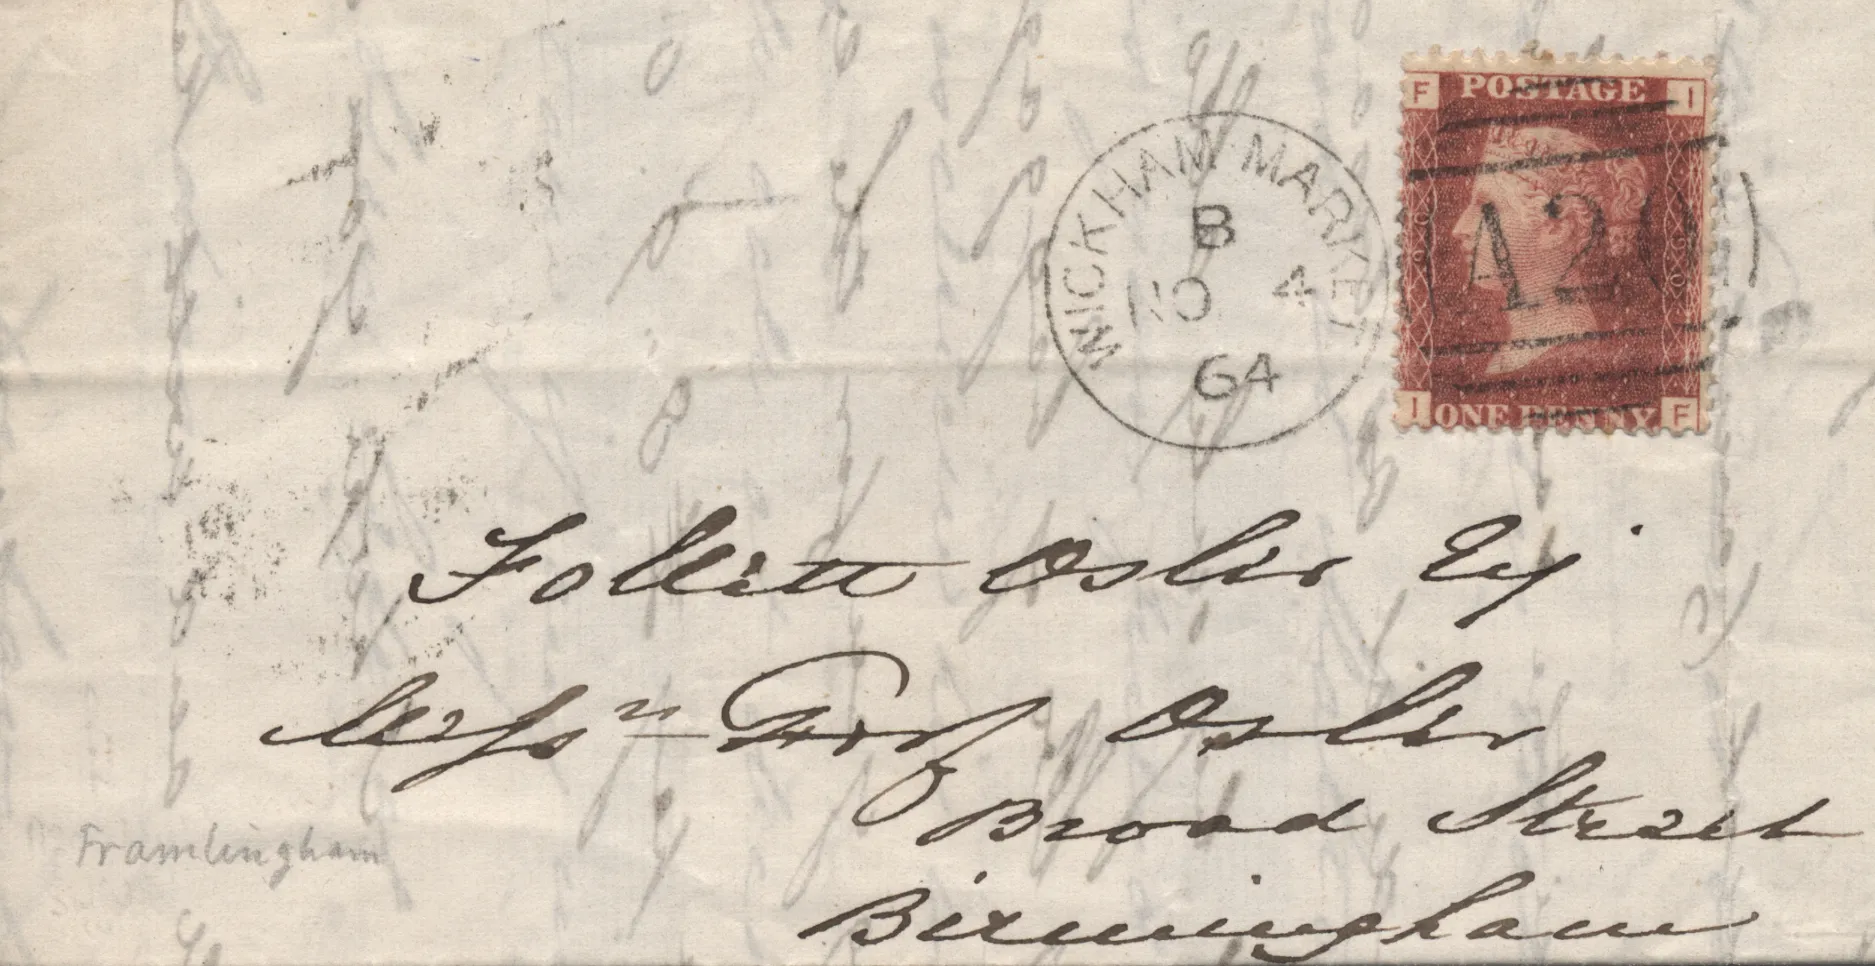 F POSTAGE I
WICKHAM MARKET
B
NO 4
64
A20
I ONE PENNY F
Follett Osler Esq
Mess rs Osler
Broad Street
Birmingham
Framlingham